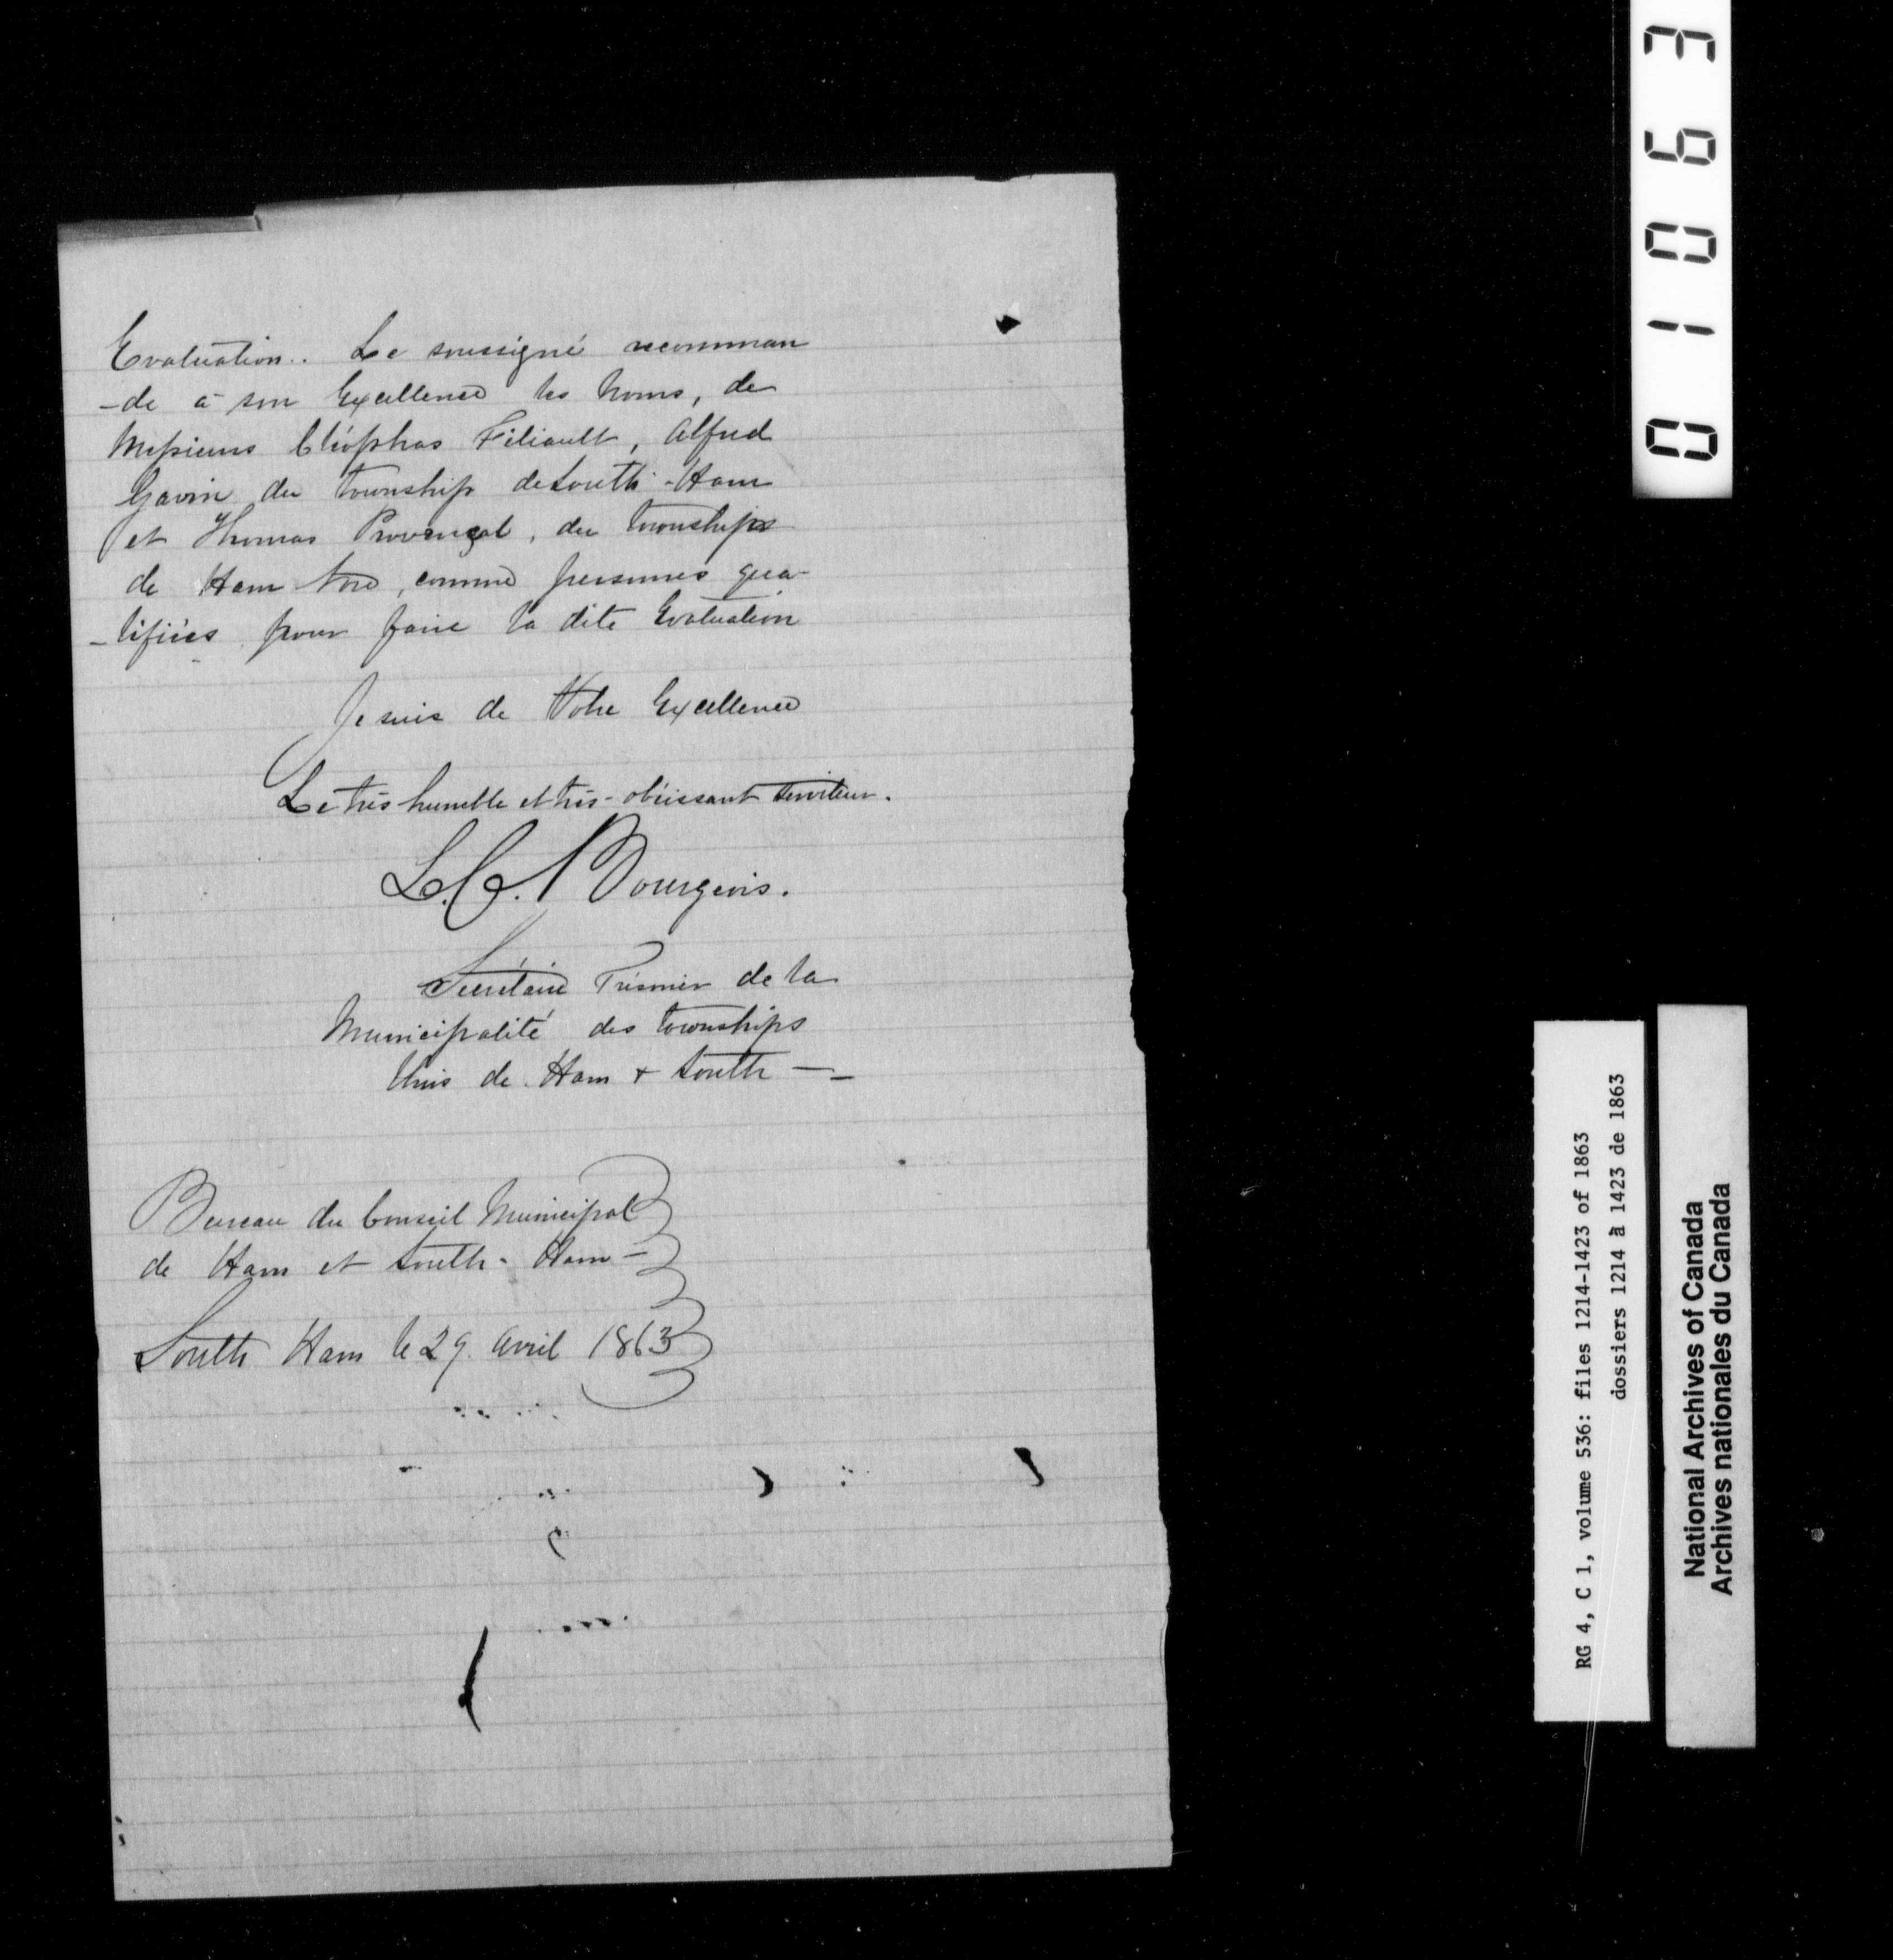 Evaluation. Le soussigné recomman
-de à son Excellence les noms, de
Messieurs Cléophas Filiault, Alfred
Gavin du township de South-Ham
et Thomas Provençal, du townships
de Ham Nord, comme personnes qua-
-lifiées pour faire la dite Evaluation
Je suis de Votre Excellence
Le très humble et très-obéissant serviteur.
L. C. Bourgeois.
Secrétaire Trésorier de la
Municipalité des townships
Unis de Ham & South —
Bureau du Conseil Municipal
de Ham et South-Ham —
South Ham le 29 Avril 1863
01063
RG 4, C 1, volume 536: files 1214-1423 of 1863
dossiers 1214 à 1423 de 1863
National Archives of Canada
Archives nationales du Canada